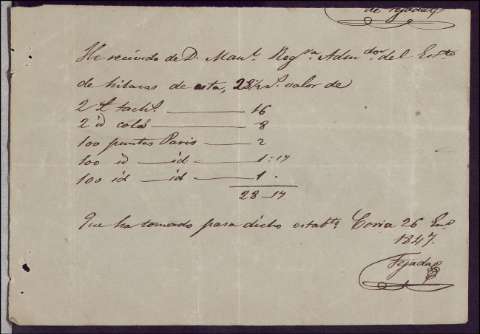 de Tejada
He recivido de D. Man.l Reg.ra Adm.dor del Est.to
de hilazas de esta, 28½ r.s valor de
2 ℔ tach.s 16
2 id cola 8
100 puntas Paris 2
100 id id 1..17
100 id id 1.
28..17
Que ha tomado para dicho estab.to Coria 26 En.o
1847.
Tejada